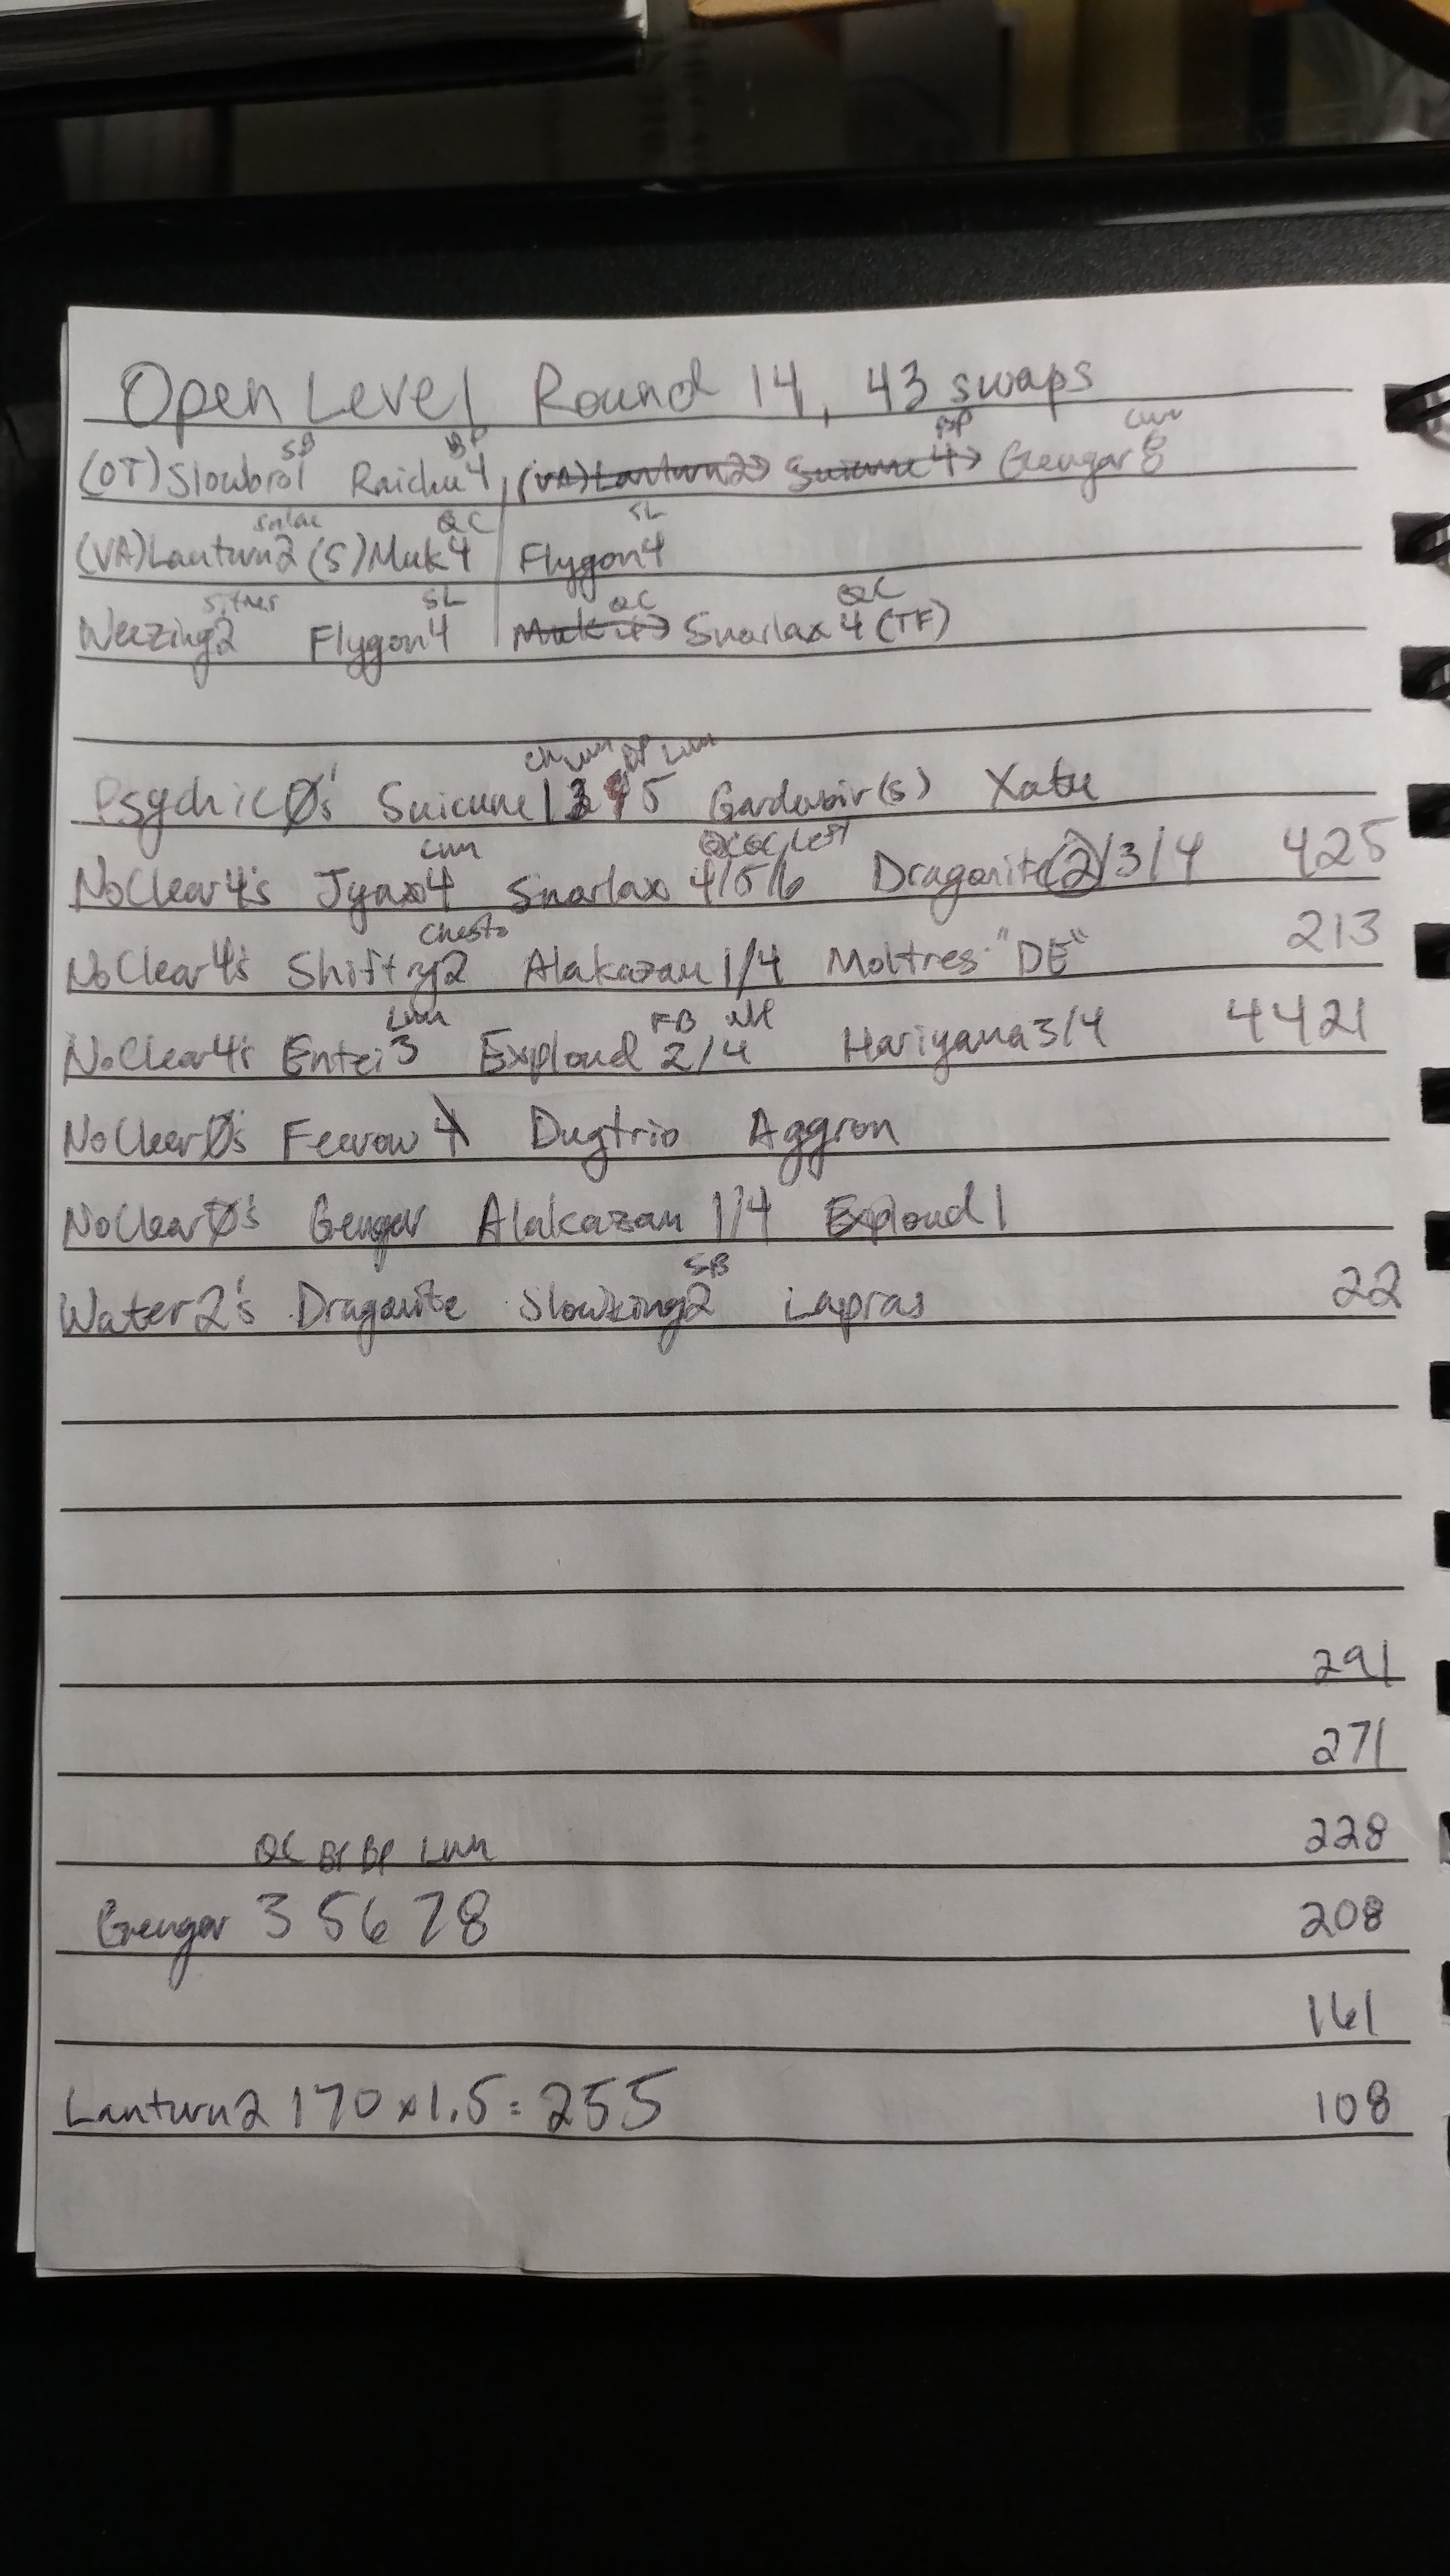 Open Level Round 14, 43 swaps
SB BP BP Lum
(OT)Slowbro1 Raichu4 (VA)Lanturn2→ Suicune4→ Gengar8
Salac QC SL
(VA)Lanturn2 (S)Muk4 Flygon4
Sitrus SL QC QC
Weezing2 Flygon4 Muk4→ Snorlax4 (TF)
BP Lum
Psychic0's Suicune 1 3 4 5 Gardevoir(s) Xatu
Lum QC QC Left
NoClear4's Jynx4 Snorlax 4/5/6 Dragonite(2)/3/4 425
Chesto
NoClear4's Shiftry2 Alakazam 1/4 Moltres "DE" 213
Lum FB
NoClear4's Entei3 Exploud 2/4 Hariyama3/4 4421
NoClear0's Fearow 4 Dugtrio Aggron
NoClear0's Gengar Alakazam 1/4 Exploud1
SB
Water2's Dragonite Slowking2 Lapras 22
291
271
QC BP Lum 228
Gengar 3 5 6 7 8 208
161
Lanturn2 170x1.5=255 108